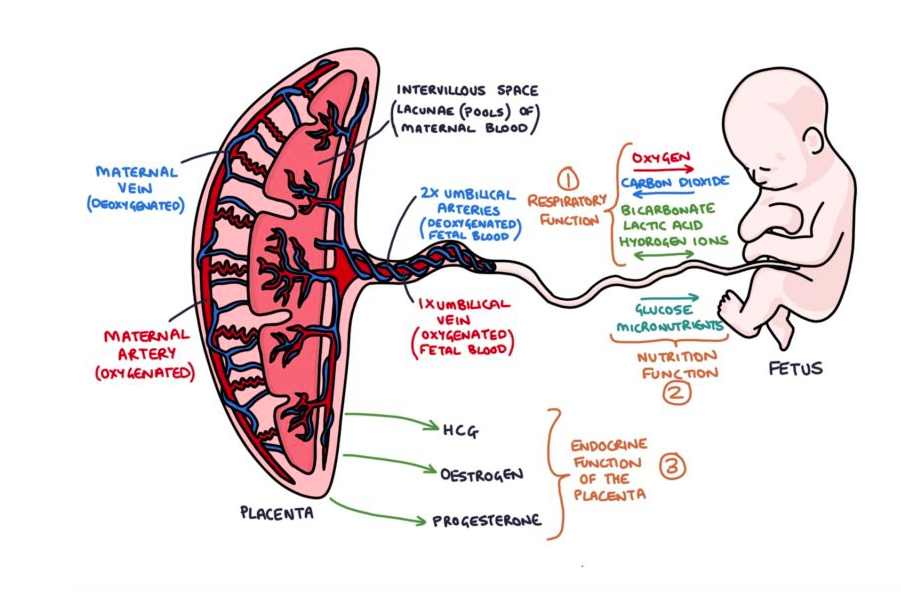 INTERVILLOUS SPACE
(LACUNAE (POOLS) OF
MATERNAL BLOOD)
MATERNAL
VEIN
(DEOXYGENATED)
2X UMBILICAL
ARTERIES
(DEOXYGENATED)
FETAL BLOOD)
1
RESPIRATORY
FUNCTION
OXYGEN
CARBON DIOXIDE
BICARBONATE
LACTIC ACID
HYDROGEN IONS
MATERNAL
ARTERY
(OXYGENATED)
1X UMBILICAL
VEIN
(OXYGENATED)
FETAL BLOOD)
GLUCOSE
MICRONUTRIENTS
NUTRITION
FUNCTION
2
FETUS
HCG
OESTROGEN
PROGESTERONE
ENDOCRINE
FUNCTION
OF THE
PLACENTA
3
PLACENTA